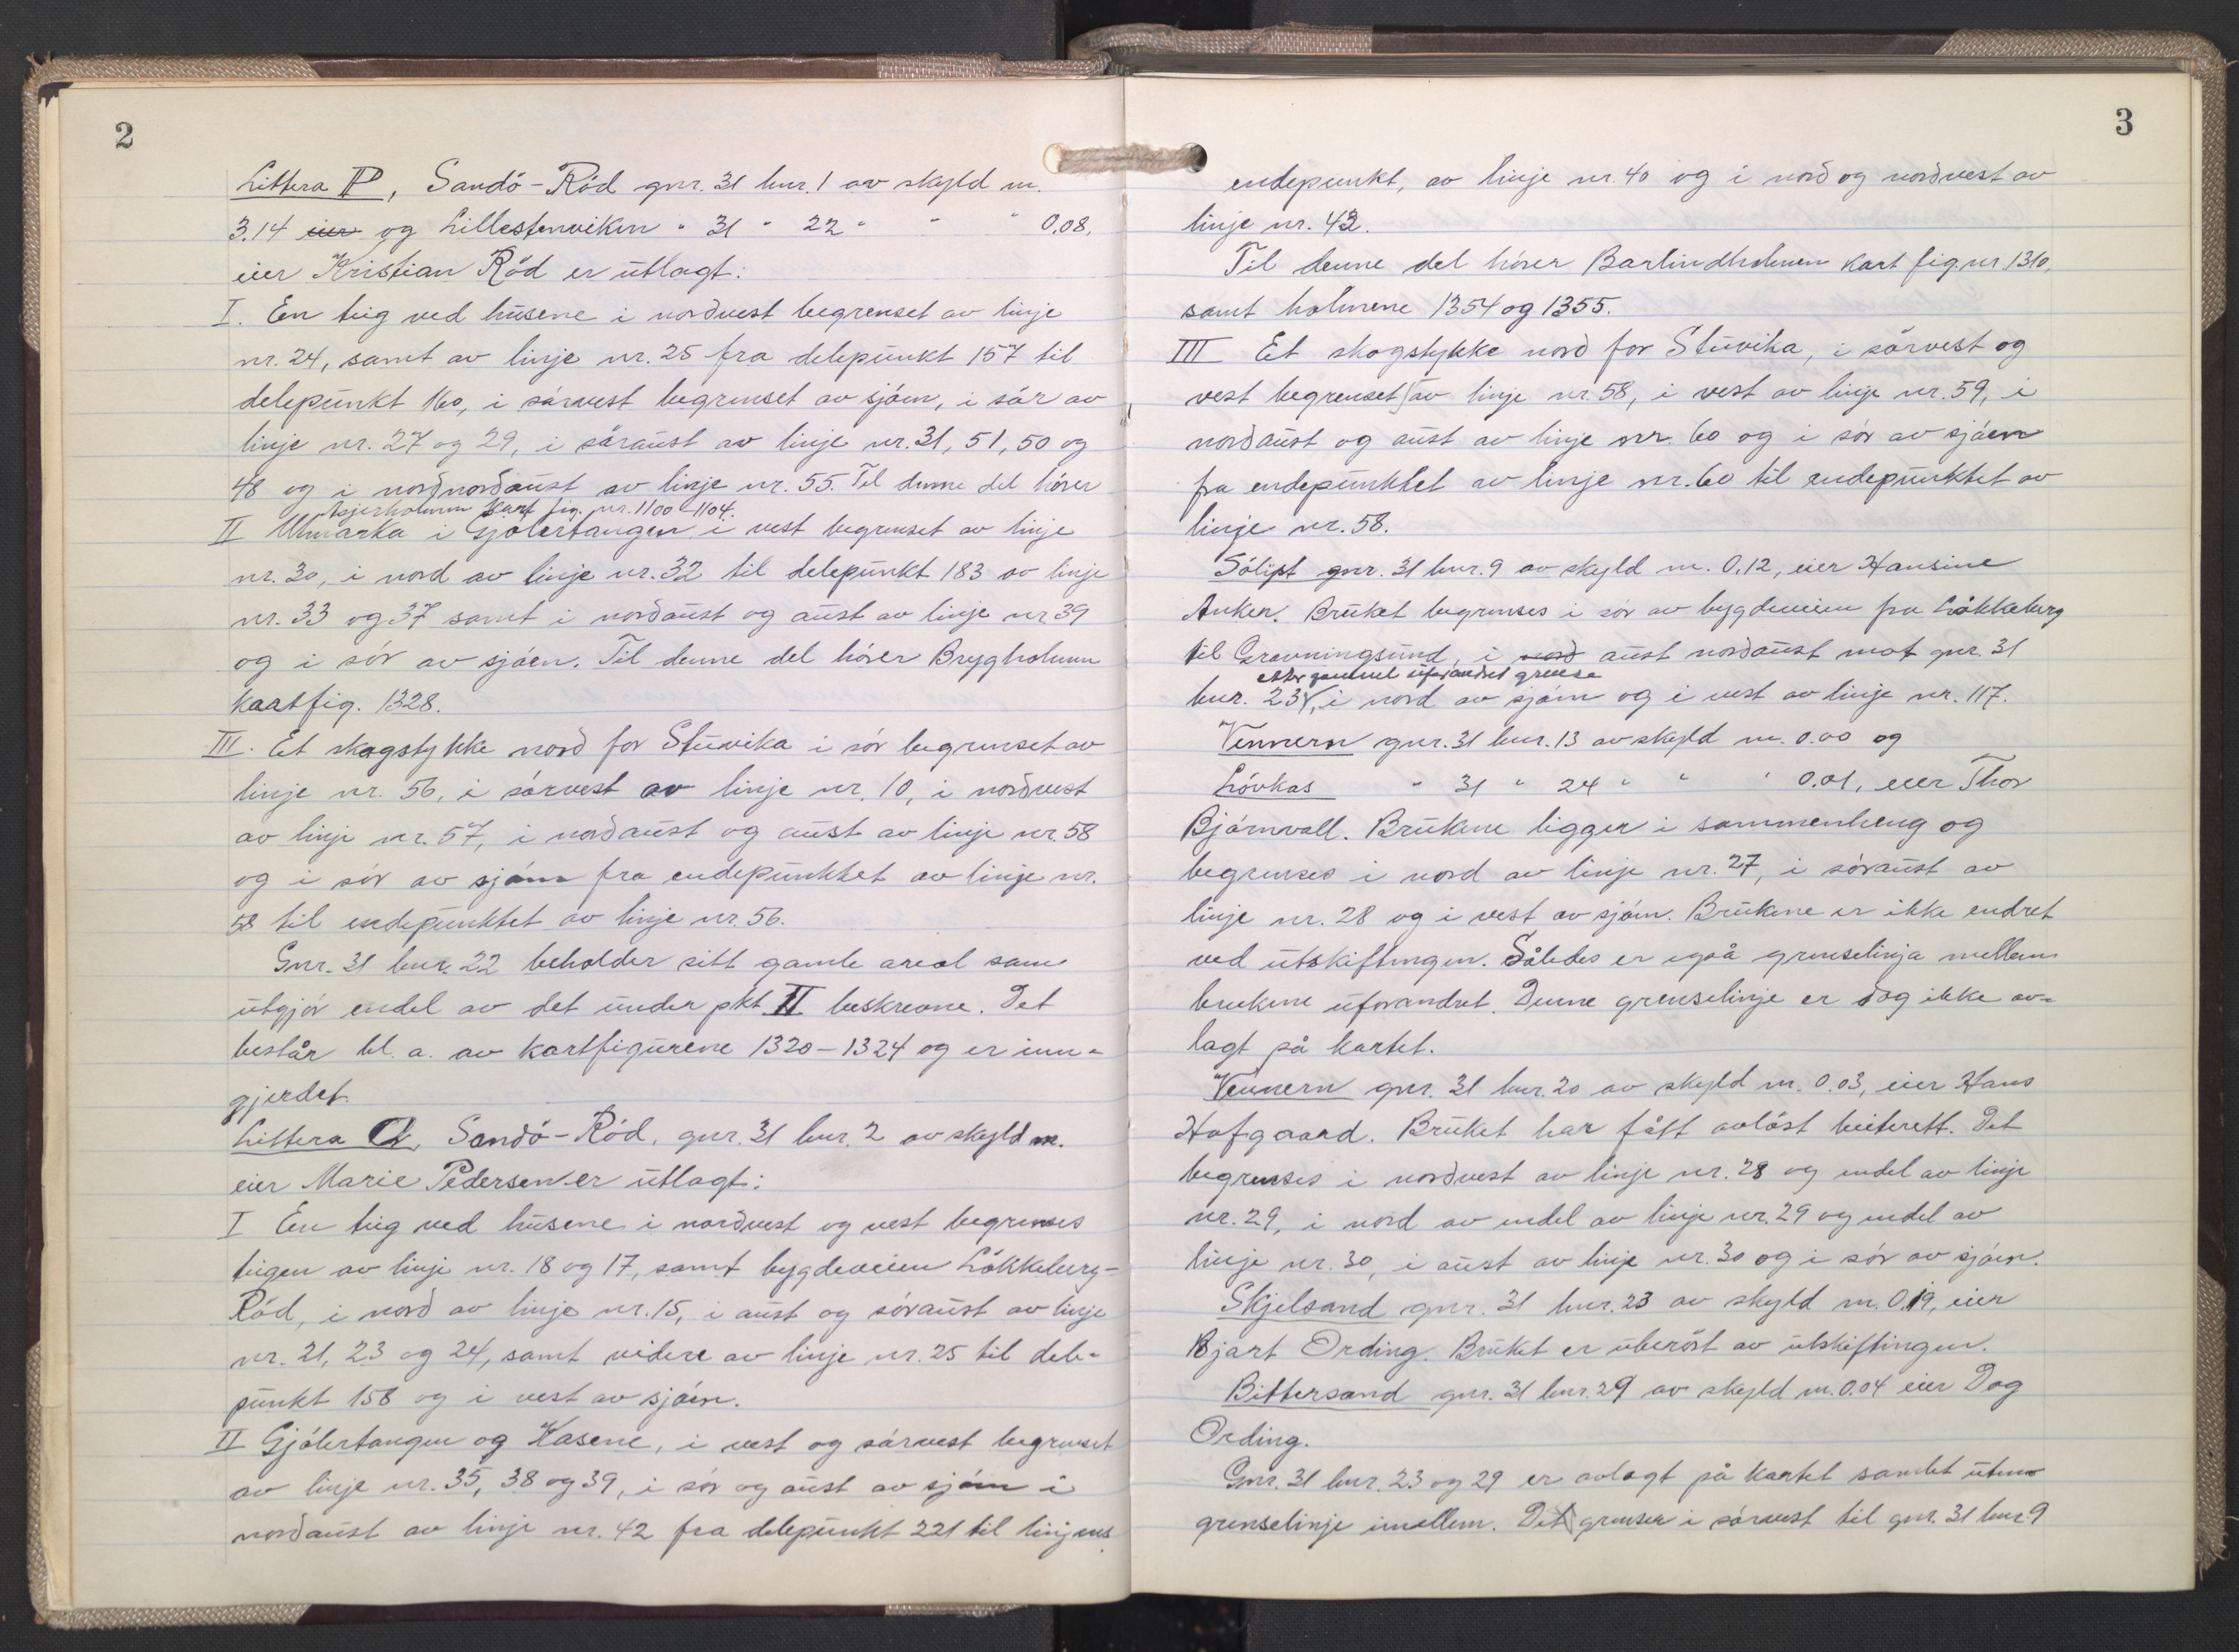 2
Littera P, Sandö-Röd gnr. 31 bnr. 1 av skyld m.
3.14 eier og Lillestenviken " 31 " 22 " " " 0.08,
eier Kristian Röd er utlagt:
I. En teig ved husene i nordvest begrenset av linje
nr. 24, samt av linje nr. 25 fra delepunkt 157 til
delepunkt 160, i sörvest begrenset av sjöen, i sör av
linje nr. 27 og 29, i söraust av linje nr. 31, 51, 50 og
48 og i nordnordaust av linje nr. 55. Til denne del hörer
kart fig. nr. 1100-1104.
II Utmarka i Gjölertangen, i vest begrenset av linje
nr. 30, i nord av linje nr. 32 til delepunkt 183 av linje
nr. 33 og 37 samt i nordaust og aust av linje nr 39
og i sör av sjöen. Til denne del hörer Brygholmen
kartfig. 1328.
III. Et skogstykke nord for Stuvika i sör begrenset av
linje nr. 56, i sörvest av linje nr. 10, i nordvest
av linje nr. 57, i nordaust og aust av linje nr. 58
og i sör av sjöen fra endepunktet av linje nr.
58 til endepunktet av linje nr. 56.
Gnr. 31 bnr. 22 beholder sitt gamle areal som
utgjör endel av det under pkt. II beskrevne. Det
består bl. a. av kartfigurene 1320-1324 og er inn-
gjerdet.
Littera Q, Sandö-Röd, gnr. 31 bnr. 2 av skyld m.
eier Marie Pedersen er utlagt:
I En teig ved husene i nordvest og vest begrenses
teigen av linje nr. 18 og 17, samt bygdeveien Lökkeberg-
Röd, i nord av linje nr. 15, i aust og söraust av linje
nr. 21, 23 og 24, samt videre av linje nr. 25 til dele-
punkt 158 og i vest av sjöen.
II Gjölertangen og Kasene, i vest og sörvest begrenset
av linje nr. 35, 38 og 39, i sör og aust av sjöen i
nordaust av linje nr. 42 fra delepunkt 221 til linjens
3
endepunkt, av linje nr. 40 og i nord og nordvest av
linje nr. 43.
Til denne del hörer Barlindholmen kart fig. nr. 1310,
samt holmene 1354 og 1355.
III Et skogstykke nord for Stuvika, i sörvest og
vest begrenset av linje nr. 58, i vest av linje nr. 59, i
nordaust og aust av linje nr. 60 og i sör av sjöen
fra endepunktet av linje nr. 60 til endepunktet av
linje nr. 58.
Sölist gnr. 31 bnr. 9 av skyld m. 0,12, eier Hansine
Anker. Bruket begrenses i sör av bygdeveien fra Lökkeberg
til Gravningsund, i nord aust nordaust mot gnr. 31
etter gammel uforandret grense
bnr. 23, i nord av sjöen og i vest av linje nr. 117.
Vennern gnr. 31 bnr. 13 av skyld m. 0.00 og
Lövkas " 31 " 24 " " " 0.01, eier Thor
Björnvall. Brukene ligger i sammenheng og
begrenses i nord av linje nr. 27, i söraust av
linje nr. 28 og i vest av sjöen. Brukene er ikke endret
ved utskiftingen. Således er også grenselinja mellem
brukene uforandret. Denne grenselinje er dog ikke av-
lagt på kartet.
Vennern gnr. 31 bnr. 20 av skyld m. 0.03, eier Hans
Hofgaard. Bruket har fått avlöst beiterett. Det
begrenses i nordvest av linje nr. 28 og endel av linje
nr. 29, i nord av endel av linje nr. 29 og endel av
linje nr. 30, i aust av linje nr. 30 og i sör av sjöen.
Skjelsand gnr. 31 bnr. 23 av skyld m. 0.19, eier
Bjart Ording. Bruket er uberört av utskiftingen.
Bittersand gnr. 31 bnr. 29 av skyld m. 0.04 eier Dag
Ording.
Gnr. 31 bnr. 23 og 29 er avlagt på kartet samlet uten
grenselinje imellem. Det grenser i sörvest til gnr. 31 bnr. 9